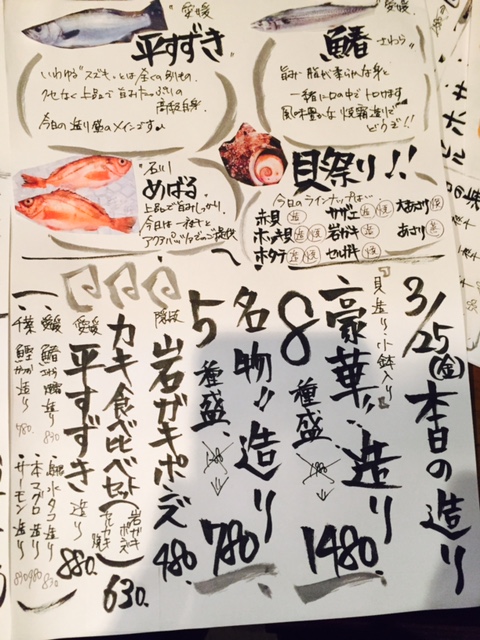 愛媛
平すずき
いわゆる"スズキ"とは全くの別もの。
クセなく上品で旨みたっぷりの
高級白身。
今日の造り盛のメインですよ
愛媛
鰆 さわら
旨み、脂が柔らかな身と
一緒に口の中でトロけます
風味豊かな焼霜造りで
どうぞ!!
石川
めばる
上品で旨みしっかり。
今日は一本焼と
アクアパッツァでのご提供
貝祭り!!
今日のラインナップは…
赤貝 造
サザエ 造 焼
大あさり 焼
ホッキ貝 造 焼
岩ガキ 造
あさり 蒸
ホタテ 造 焼
セルガキ 焼
3/25(金)本日の造り
『貝造り小鉢入り』
豪華!!造り
8種盛 1480.
名物!!造り
5種盛 780.
隠岐 岩ガキポン酢 480.
カキ食べ比べセット 630.
愛媛 平すずき 造り 880.
愛媛 鰆 さわら 焼霜造り 830
千葉 鰹 かつお 造り 780.
水タコ造り 830
本マグロ造り 980
サーモン造り 830